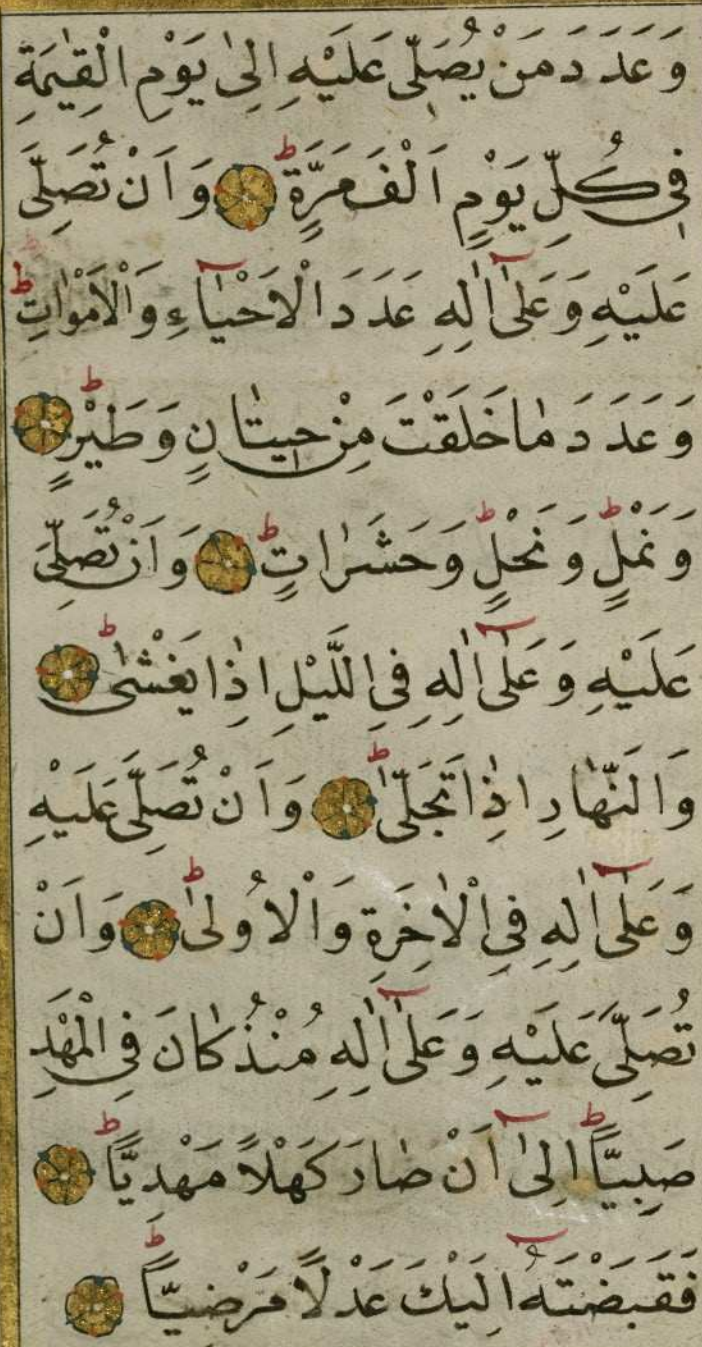 وَعَدَدَ مَنْ يُصَلِّى عَلَيْهِ اِلٰى يَوْمِ الْقِيٰمَةِ
فِى كُلِّ يَوْمٍ اَلْفَ مَرَّةٍ ط وَاَنْ تُصَلِّىَ
عَلَيْهِ وَعَلٰٓى اٰلِهِ عَدَدَ الْاَحْيَآءِ وَالْاَمْوٰاتِ ط
وَعَدَدَ مٰا خَلَقْتَ مِنْ حٖيتٰانٍ وَطَيْرٍ ط
وَنَمْلٍ ط وَنَحْلٍ ط وَحَشَرٰاتٍ ط وَاَنْ تُصَلِّىَ
عَلَيْهِ وَعَلٰٓى اٰلِهِ فِى الَّيْلِ اِذٰا يَغْشٰى ط
وَالنَّهٰارِ اِذٰا تَجَلّٰى ط وَاَنْ تُصَلِّىَ عَلَيْهِ
وَعَلٰٓى اٰلِهِ فِى الْاٰخِرَةِ وَالْاُولٰى ط وَاَنْ
تُصَلِّىَ عَلَيْهِ وَعَلٰٓى اٰلِهِ مُنْذُ كٰانَ فِى الْمَهْدِ
صَبِيّاً ط اِلٰٓى اَنْ صٰارَ كَهْلاً مَهْدِيّاً ط
فَقَبَضْتَهُٓ اِلَيْكَ عَدْلاً مَرْضِيّاً ط